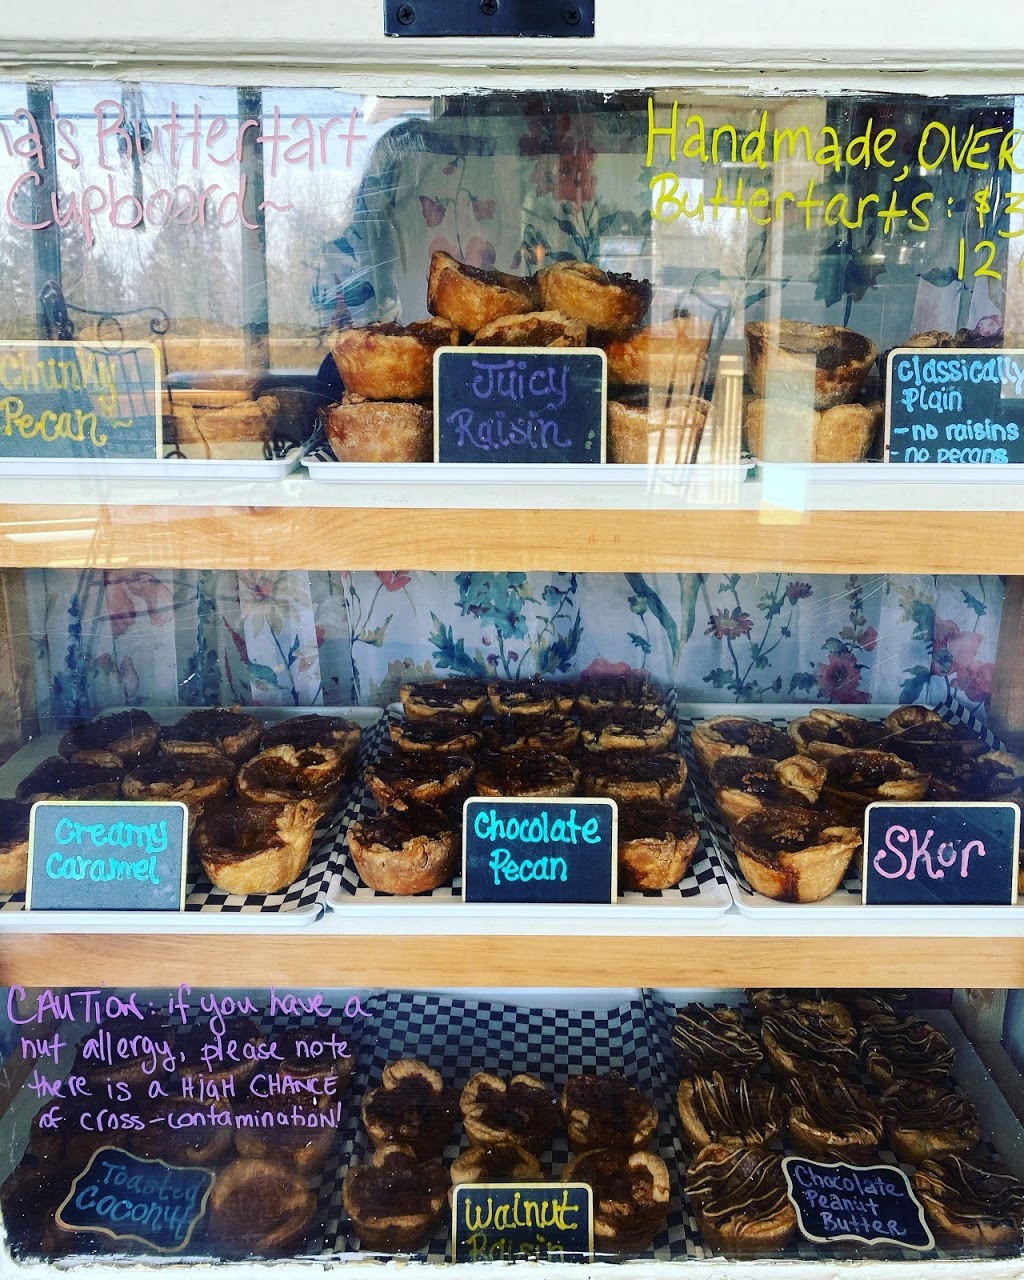 na's Buttertart
Cupboard~
Handmade, OVER
Buttertarts: $3
12
Chunky
Pecan~
Juicy
Raisin
classically
Plain
-no raisins
-no pecans
Creamy
Caramel
Chocolate
Pecan
SKor
CAUTION: if you have a
nut allergy, please note
there is a HIGH CHANCE
of cross-contamination!
Toasted
Coconut
Walnut
Raisin
Chocolate
Peanut
Butter